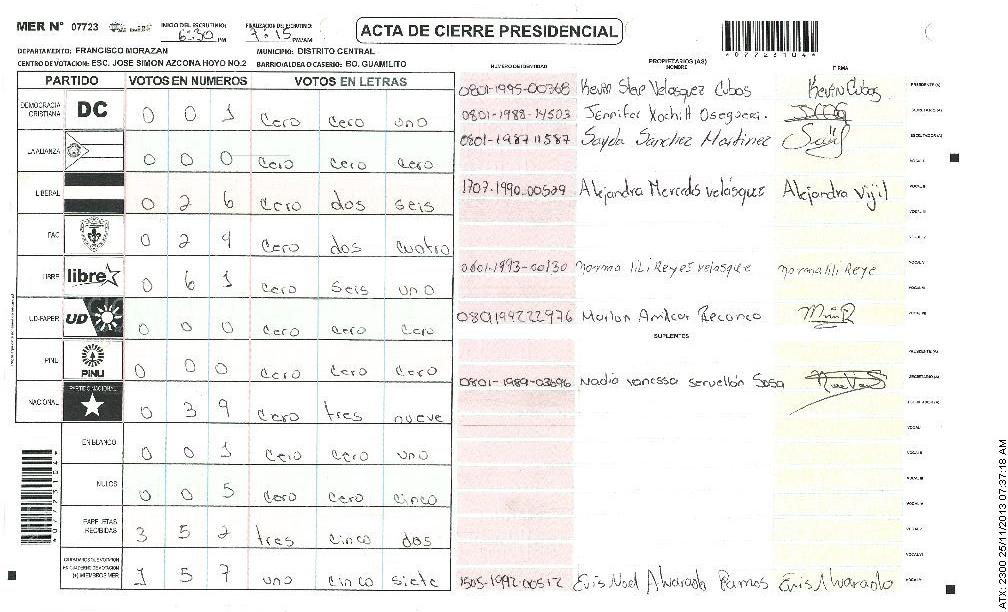 MER N° 07723 INICIO DEL ESCRUTINIO: 6:30 PM FINALIZACION DEL ESCRUTINIO: 7:15 PM/AM ACTA DE CIERRE PRESIDENCIAL
DEPARTAMENTO: FRANCISCO MORAZAN MUNICIPIO: DISTRITO CENTRAL
CENTRO DE VOTACION: ESC. JOSE SIMON AZCONA HOYO NO.2 BARRIO/ALDEA O CASERIO: BO. GUAMILITO
PARTIDO VOTOS EN NUMEROS VOTOS EN LETRAS
DEMOCRACIA CRISTIANA DC 0 0 1 cero cero uno
LA ALIANZA 0 0 0 cero cero cero
LIBERAL 0 2 6 cero dos seis
PAC 0 2 4 cero dos cuatro
LIBRE libre 0 6 1 cero seis uno
UD-FAPER UD 0 0 0 cero cero cero
PINU PINU 0 0 0 cero cero cero
NACIONAL PARTIDO NACIONAL 0 3 9 cero tres nueve
EN BLANCO 0 0 1 cero cero uno
NULOS 0 0 5 cero cero cinco
PAPELETAS RECIBIDAS 3 5 2 tres cinco dos
CIUDADANOS DE VOTACION EN CUADERNO DE VOTACION (+) MIEMBROS MER 1 5 7 uno cinco siete
PROPIETARIOS (AS)
NUMERO DE IDENTIDAD NOMBRE FIRMA
0801-1995-00368 Kevin Velasquez Cubos Kevin Cubos PRESIDENTE (A)
0801-1988-14503 Jennifer Xochilt Oseguera. SECRETARIO (A)
0801-1987 11587 Sayda Sanchez Martinez ESCRUTADOR (A)
VOCAL I
1707-1990-00529 Alejandra Mercedes velásquez Alejandra Vijil VOCAL II
VOCAL III
VOCAL IV
0801-1993-00130 norma lili Reyes velasque norma lili Reye VOCAL V
VOCAL VI
080199222976 Marlon Amilcar Reconco VOCAL VII
SUPLENTES
PRESIDENTE (A)
0801-1989-03696 Nadia vanessa servellón Sosa SECRETARIO (A)
ESCRUTADOR (A)
VOCAL I
VOCAL II
VOCAL III
VOCAL IV
VOCAL V
VOCAL VI
1505-1992-00512 Evis Noel Alvarado Ramos Evis Alvarado
*0772310 4*
ATX-2300 25/11/2013 07:37:18 AM